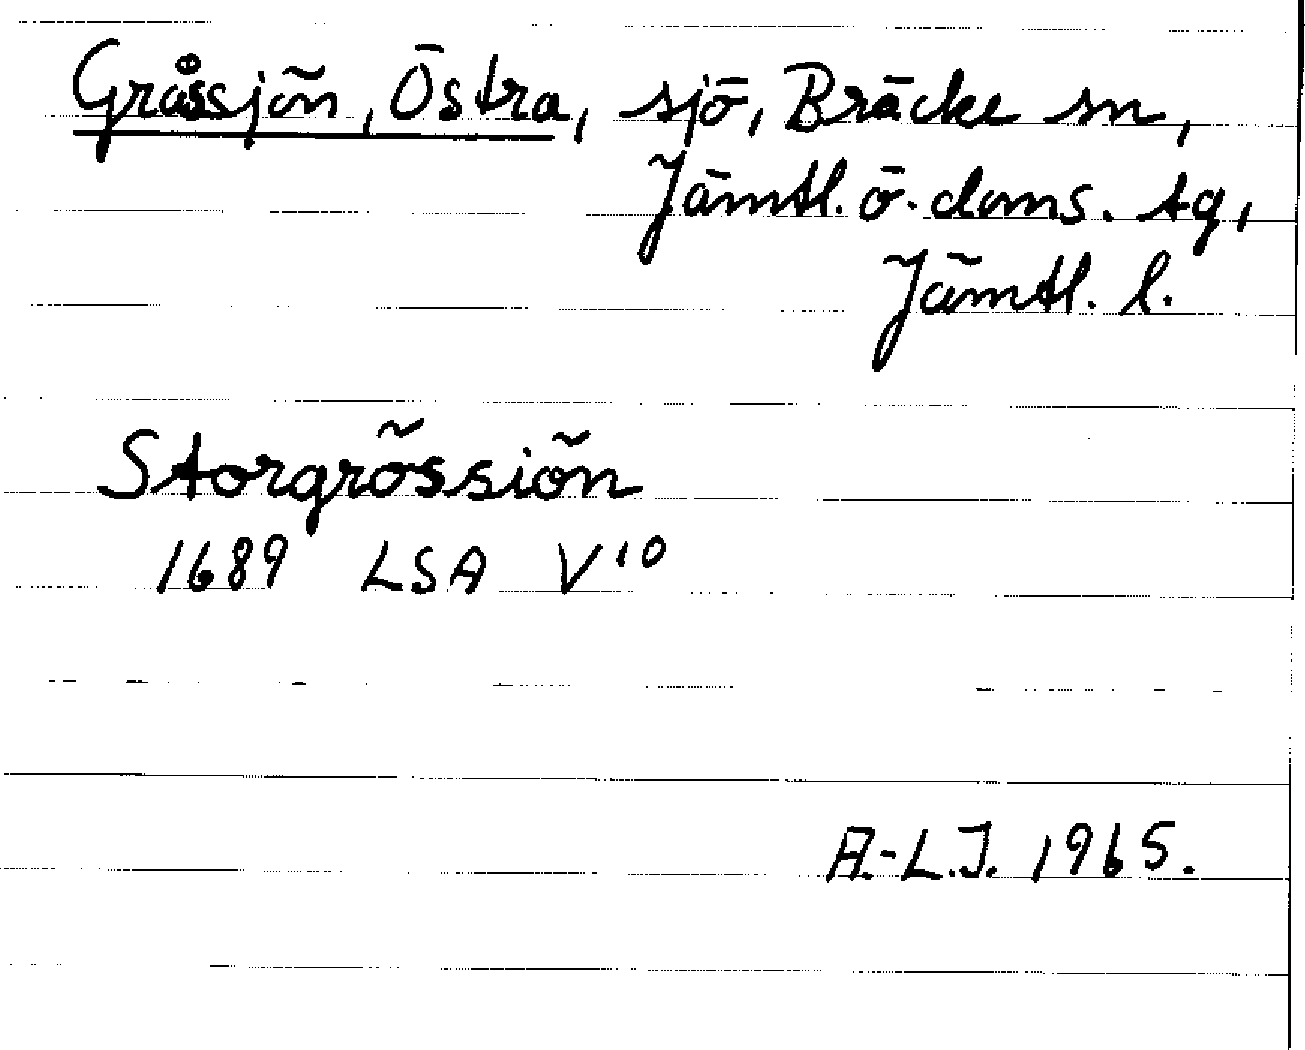 Gråssjön, Östra, sjö, Bräcke sn,
Jämtl. ö. doms. tg,
Jämtl. l.
Storgrössiön
1689 LSA V 10
A.-L.J. 1965.